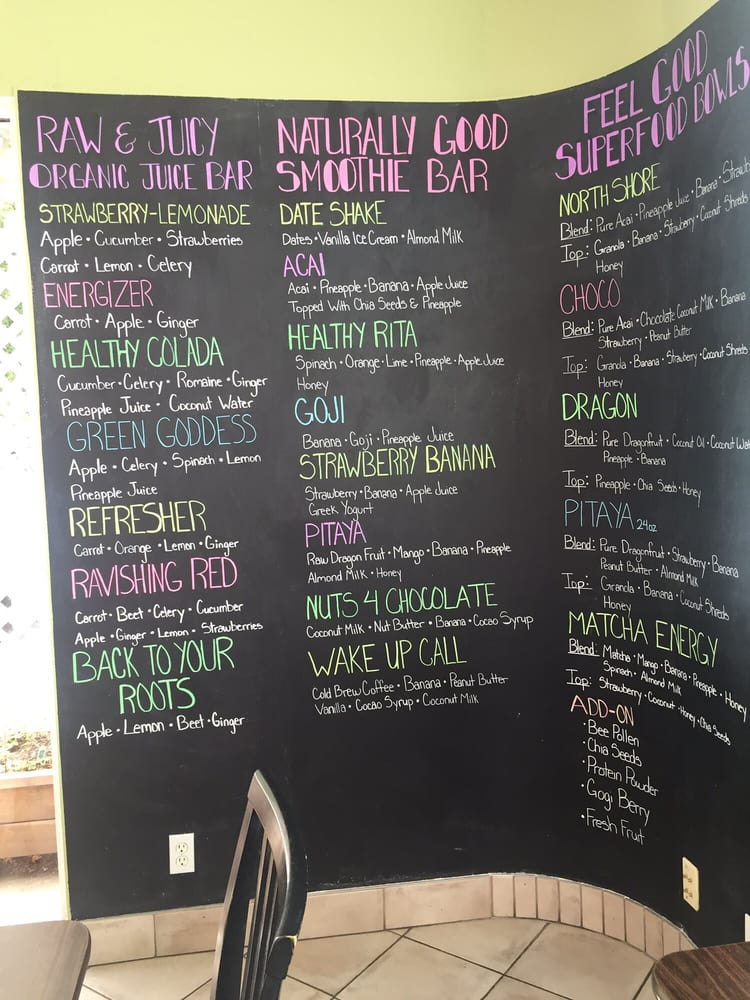 RAW & JUICY
ORGANIC JUICE BAR
STRAWBERRY-LEMONADE
Apple • Cucumber • Strawberries
Carrot • Lemon • Celery
ENERGIZER
Carrot • Apple • Ginger
HEALTHY COLADA
Cucumber • Celery • Romaine • Ginger
Pineapple Juice • Coconut Water
GREEN GODDESS
Apple • Celery • Spinach • Lemon
Pineapple Juice
REFRESHER
Carrot • Orange • Lemon • Ginger
RAVISHING RED
Carrot • Beet • Celery • Cucumber
Apple • Ginger • Lemon • Strawberries
BACK TO YOUR
ROOTS
Apple • Lemon • Beet • Ginger
NATURALLY GOOD
SMOOTHIE BAR
DATE SHAKE
Dates • Vanilla Ice Cream • Almond Milk
ACAI
Acai • Pineapple • Banana • Apple Juice
Topped With Chia Seeds & Pineapple
HEALTHY RITA
Spinach • Orange • Lime • Pineapple • Apple Juice
Honey
GOJI
Banana • Goji • Pineapple Juice
STRAWBERRY BANANA
Strawberry • Banana • Apple Juice
Greek Yogurt
PITAYA
Raw Dragon Fruit • Mango • Banana • Pineapple
Almond Milk • Honey
NUTS 4 CHOCOLATE
Coconut Milk • Nut Butter • Banana • Cacao Syrup
WAKE UP CALL
Cold Brew Coffee • Banana • Peanut Butter
Vanilla • Cacao Syrup • Coconut Milk
FEEL GOOD
SUPERFOOD BOWLS
NORTH SHORE
Blend: Pure Acai • Pineapple Juice • Banana • Strawb
Top: Granola • Banana • Strawberry • Coconut Shreds
Honey
CHOCO
Blend: Pure Acai • Chocolate Coconut Milk • Banana
Strawberry • Peanut Butter
Top: Granola • Banana • Strawberry • Coconut Shreds
Honey
DRAGON
Blend: Pure Dragonfruit • Coconut Oil • Coconut Wat
Pineapple • Banana
Top: Pineapple • Chia Seeds • Honey
PITAYA 24oz
Blend: Pure Dragonfruit • Strawberry • Banana
Peanut Butter • Almond Milk
Top: Granola • Banana • Coconut Shreds
Honey
MATCHA ENERGY
Blend: Matcha • Mango • Banana • Pineapple • Honey
Spinach • Almond Milk
Top: Strawberry • Coconut • Honey • Chia Seeds
ADD-ON
• Bee Pollen
• Chia Seeds
• Protein Powder
• Gogi Berry
• Fresh Fruit